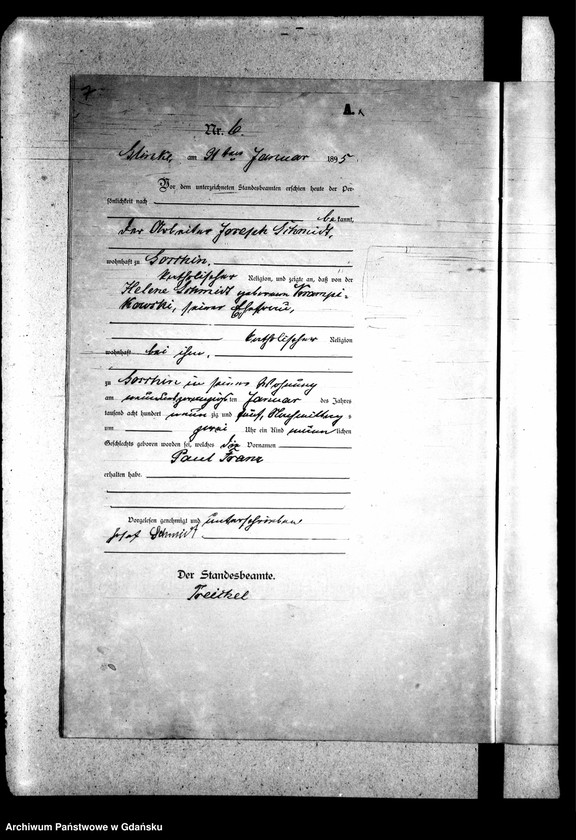 7
A.
Nr. 6.
am 31ten Januar 1895
Vor dem unterzeichneten Standesbeamten erschien heute der Per-
sönlichkeit nach
bekannt,
der Arbeiter Joseph Schmidt,
wohnhaft zu Gorrhin.
katholischer Religion, und zeigte an, daß von der
Helene Schmidt geborenen Krampi-
kowski, seiner Ehefrau,
katholischer Religion
wohnhaft bei ihm,
zu Gorrhin in seiner Wohnung
am neunundzwanzigsten Januar des Jahres
tausend acht hundert neunzig und fünf, Nachmittags
um zwei Uhr ein Kind männlichen
Geschlechts geboren worden sei, welches die Vornamen
Paul Franz
erhalten habe.
Vorgelesen, genehmigt und unterschrieben
Josef Schmidt
Der Standesbeamte.
Treichel
Archiwum Państwowe w Gdańsku